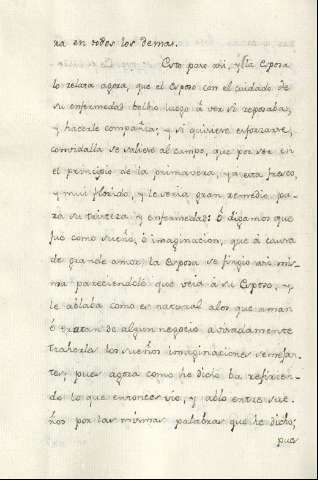 ra en todos los demas.
Esto paso asi, y la esposa
lo relata agora, que el esposo con el cuidado de
su enfermedad bolbio luego à ver si reposaba,
y hacerle compañia; y si quisiese esforzarse,
combidalla se saliese al campo, que por ser en
el principio de la primavera, ya esta fresco,
y mui florido, y le seria gran remedio pa-
ra su tristeza y enfermedad: ò digamos que
fue como sueño, ò imaginacion, que à causa
de grande amor, la Esposa se fingio asi mis-
ma pareciendole que veia à su Esposo, y
le ablaba como es natural alos que aman
ò tratan de algun negocio aviradamente
traherles los sueños imaginaciones semejan-
tes, pues agora como he dicho ba refirien-
do lo que entonces vio, y ablò entre sue-
ños por las mismas palabras que he dicho;
pues